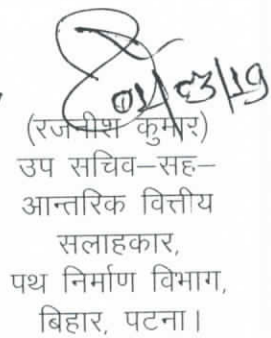 01/03/19
(रजनीश कुमार)
उप सचिव–सह–
आन्तरिक वित्तीय
सलाहकार,
पथ निर्माण विभाग,
बिहार, पटना।